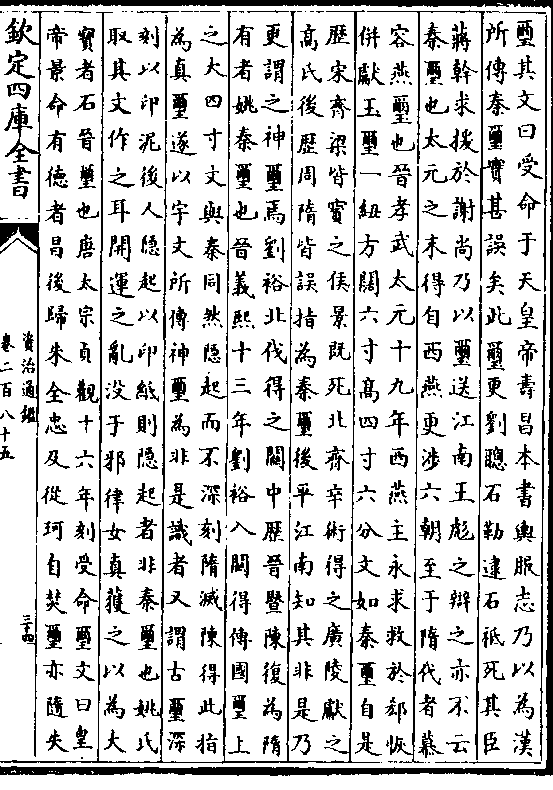 璽其文曰受命于天皇帝壽昌本書輿服志乃以為漢
所傳秦璽實甚誤矣此璽更劉聰石勒逮石祗死其臣
蔣幹求援於謝尚乃以璽送江南王彪之辯之亦不云
秦璽也太元之末得自西燕更涉六朝至于隋代者慕
容燕璽也晉孝武太元十九年西燕主永求救於郄恢
併獻玉璽一紐方闊六寸高四寸六分文如秦璽自是
歴宋齊梁皆寳之侯景既死北齊辛術得之廣陵獻之
高氏後歴周隋皆誤指為秦璽後平江南知其非是乃
更謂之神璽焉劉裕北伐得之闗中歴晉暨陳復為隋
有者姚秦璽也晉義熙十三年劉裕入闗得傳國璽上
之大四寸文與秦同然隠起而不深刻隋滅陳得此指
為真璽遂以宇文所傳神璽為非是識者又謂古璽深
刻以印泥後人隠起以印紙則隠起者非秦璽也姚氏
取其文作之耳開運之亂没于邪律女真獲之以為大
寳者石晉璽也唐太宗貞觀十六年刻受命璽文曰皇
帝景命有德者昌後歸朱全忠及從珂自焚璽亦隨失
欽定四庫全書
資治通鑑
卷二百八十五
三十四